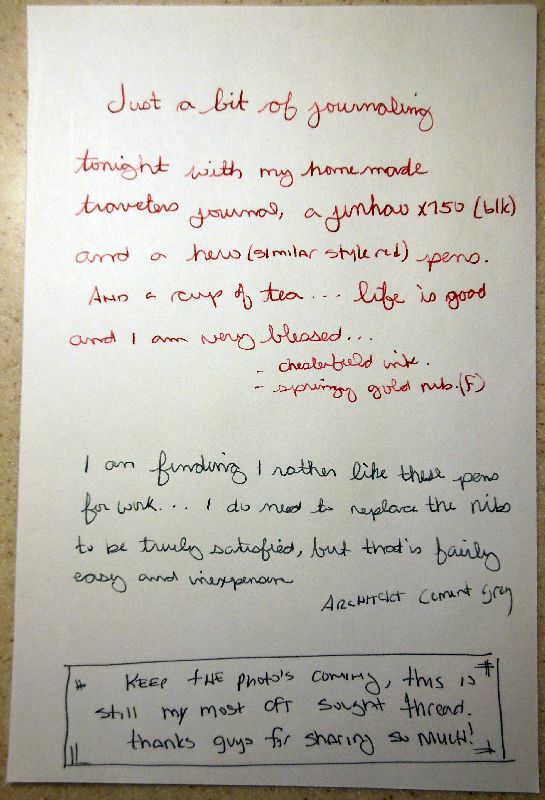 Just a bit of journaling
tonight with my homemade
travelers journal, a jinhao x750 (blk)
and a hero (similar style red) pens.
AND a cup of tea... life is good
and I am very blessed...
- chesterfield ink.
- springy gold nib. (F)
I am finding I rather like these pens
for work... I do need to replace the nibs
to be truly satisfied, but that is fairly
easy and inexpensive
ARCHITECT Cement Grey
KEEP tHE photo's coming, this is
still my most oft sought thread.
thanks guys for sharing so MUCH!